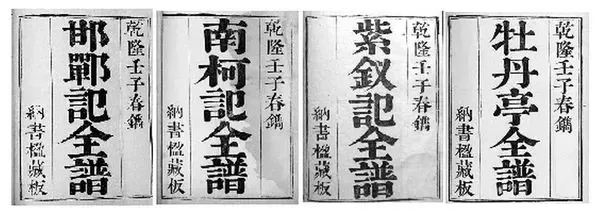 乾隆壬子春鐫
牡丹亭全譜
納書楹藏板
乾隆壬子春鐫
紫釵記全譜
納書楹藏板
乾隆壬子春鐫
南柯記全譜
納書楹藏板
乾隆壬子春鐫
邯鄲記全譜
納書楹藏板